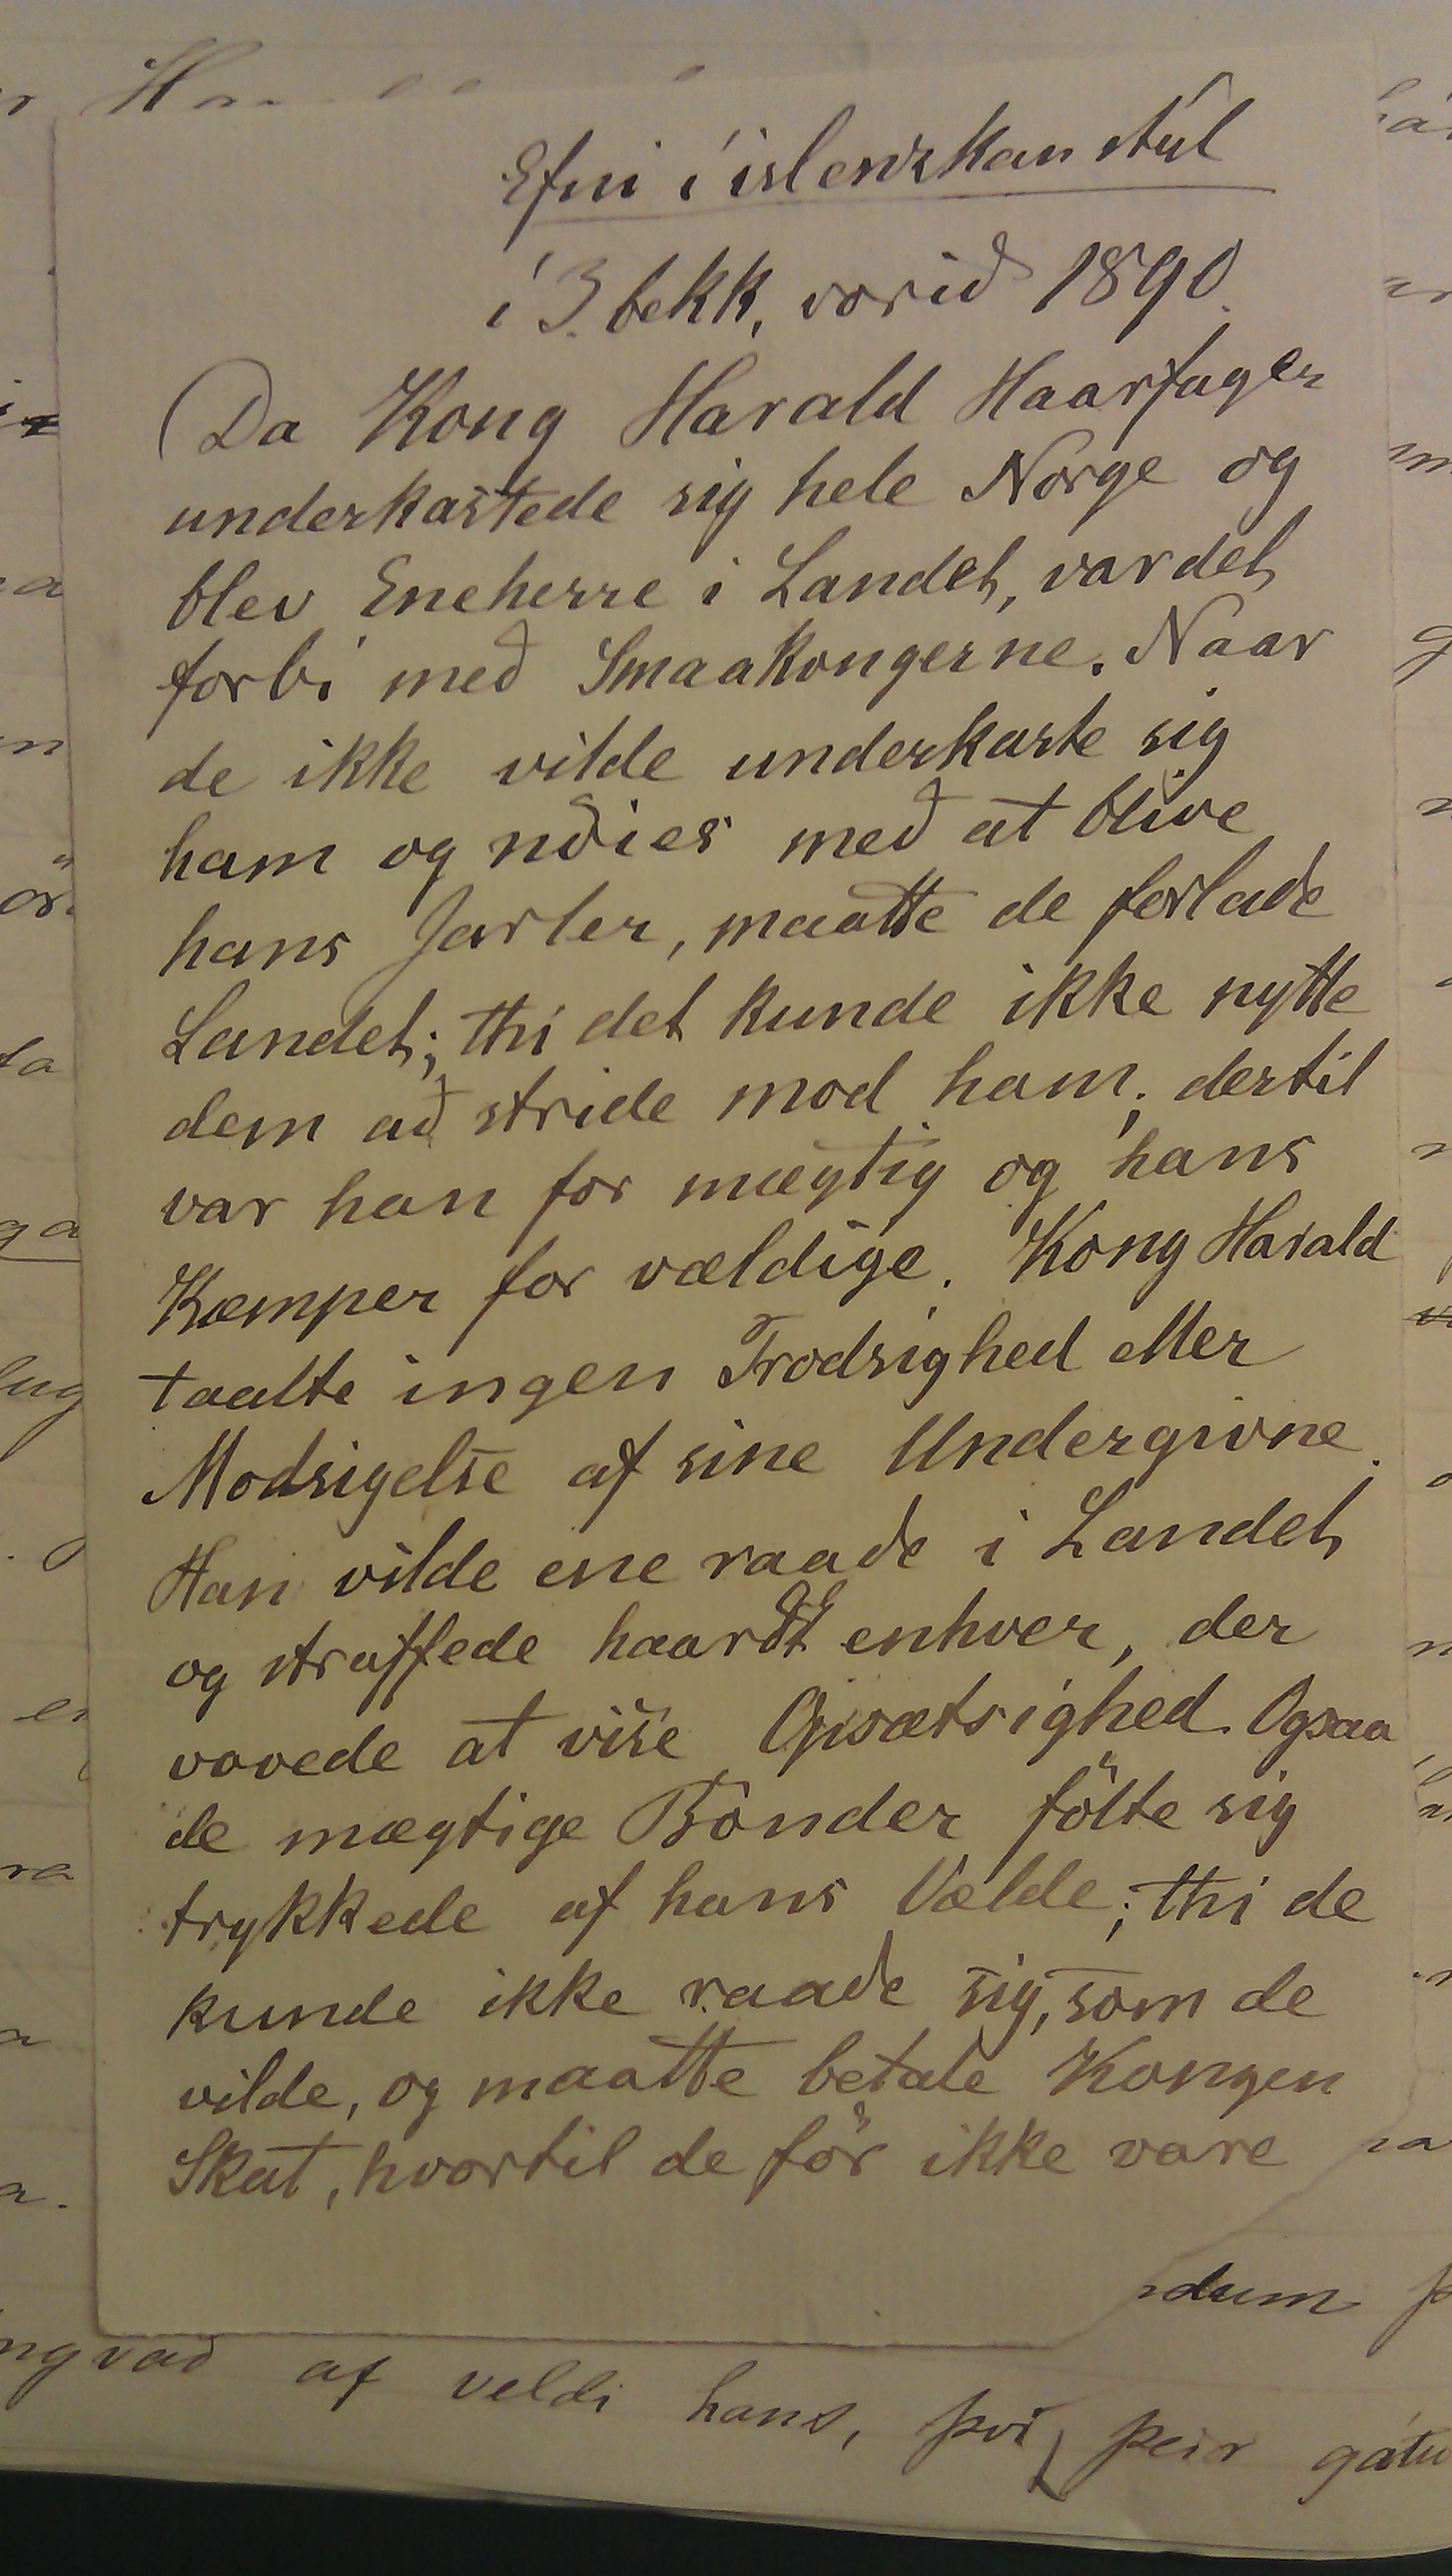 Efni í íslenzkan stíl
í 3. bekk, vorið 1890.
Da Kong Harald Haarfager
underkastede sig hele Norge og
blev Eneherre i Landet, var det
forbi með Smaakongerne. Naar
de ikke vilde underkaste sig
ham og nöies með at blive
hans Jarler, maatte de forlade
Landet; thi det kunde ikke nytte
dem að stride mod ham; dertil
var han for mægtig og hans
Kæmper for vældige. Kong Harald
taalte ingen Trodsighed eller
Modsigelse af sine Undergivne.
Han vilde ene raade i Landet
og straffede haardt enhver, der
vovede at vise Opsætsighed. Ogsaa
de mægtige Bönder fölte sig
trykkede af hans Vælde; thi de
kunde ikke raade sig, som de
vilde, og maatte betale Kongen
Skat, hvortil de för ikke vare
dum
af veldi hans, því þeir gátu